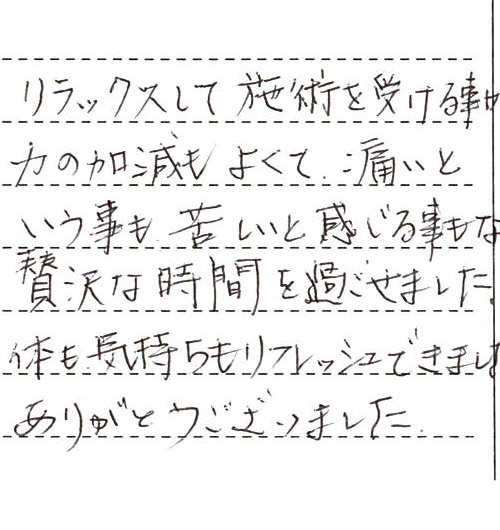 リラックスして施術を受ける事が
力の加減もよくて、痛いと
いう事も苦しいと感じる事もな
贅沢な時間を過ごせました。
体も気持ちもリフレッシュできまし
ありがとうございました。